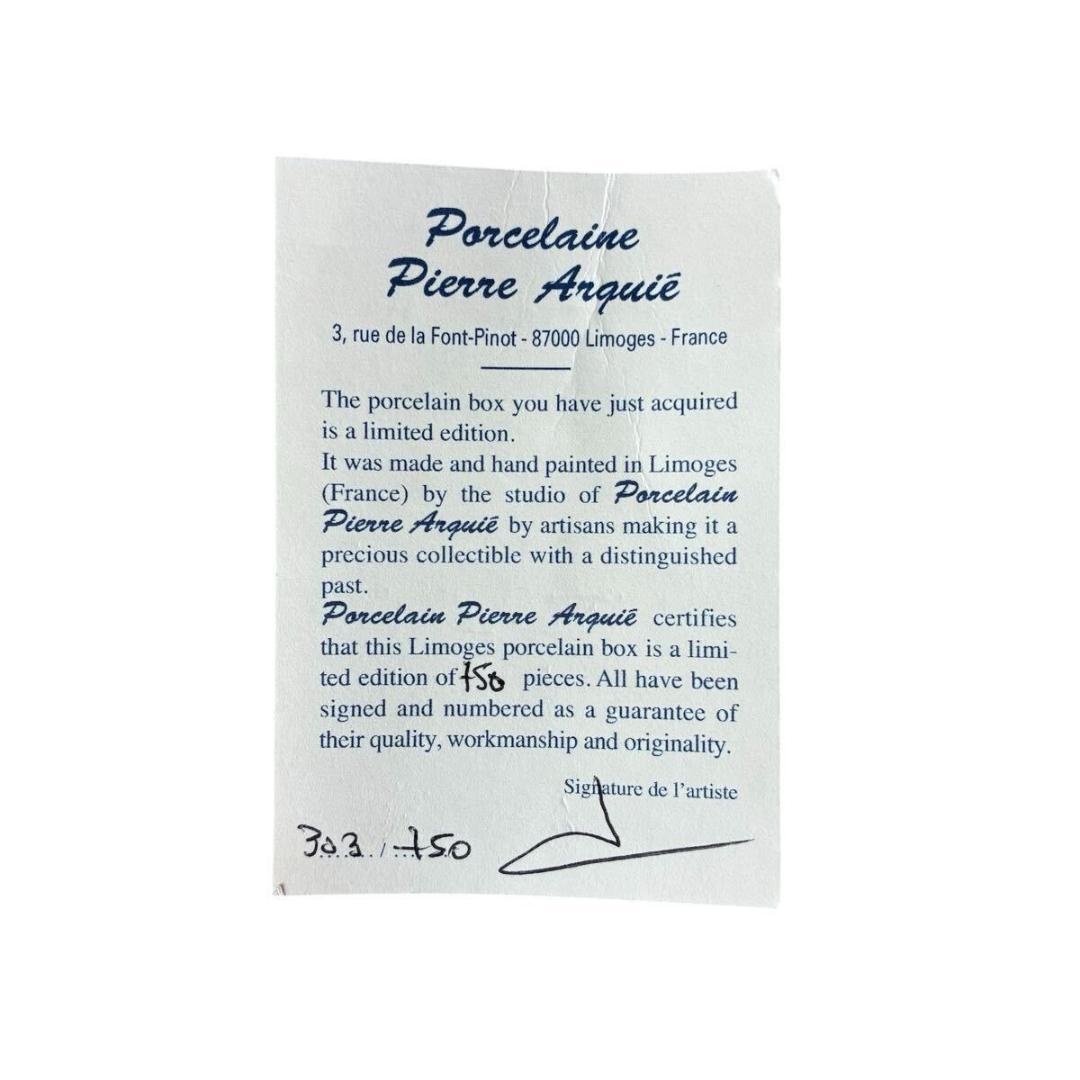 Porcelaine
Pierre Arquié
3, rue de la Font-Pinot - 87000 Limoges - France
The porcelain box you have just acquired
is a limited edition.
It was made and hand painted in Limoges
(France) by the studio of Porcelain
Pierre Arquié by artisans making it a
precious collectible with a distinguished
past.
Porcelain Pierre Arquié certifies
that this Limoges porcelain box is a limi-
ted edition of 750 pieces. All have been
signed and numbered as a guarantee of
their quality, workmanship and originality.
Signature de l'artiste
303 / 750